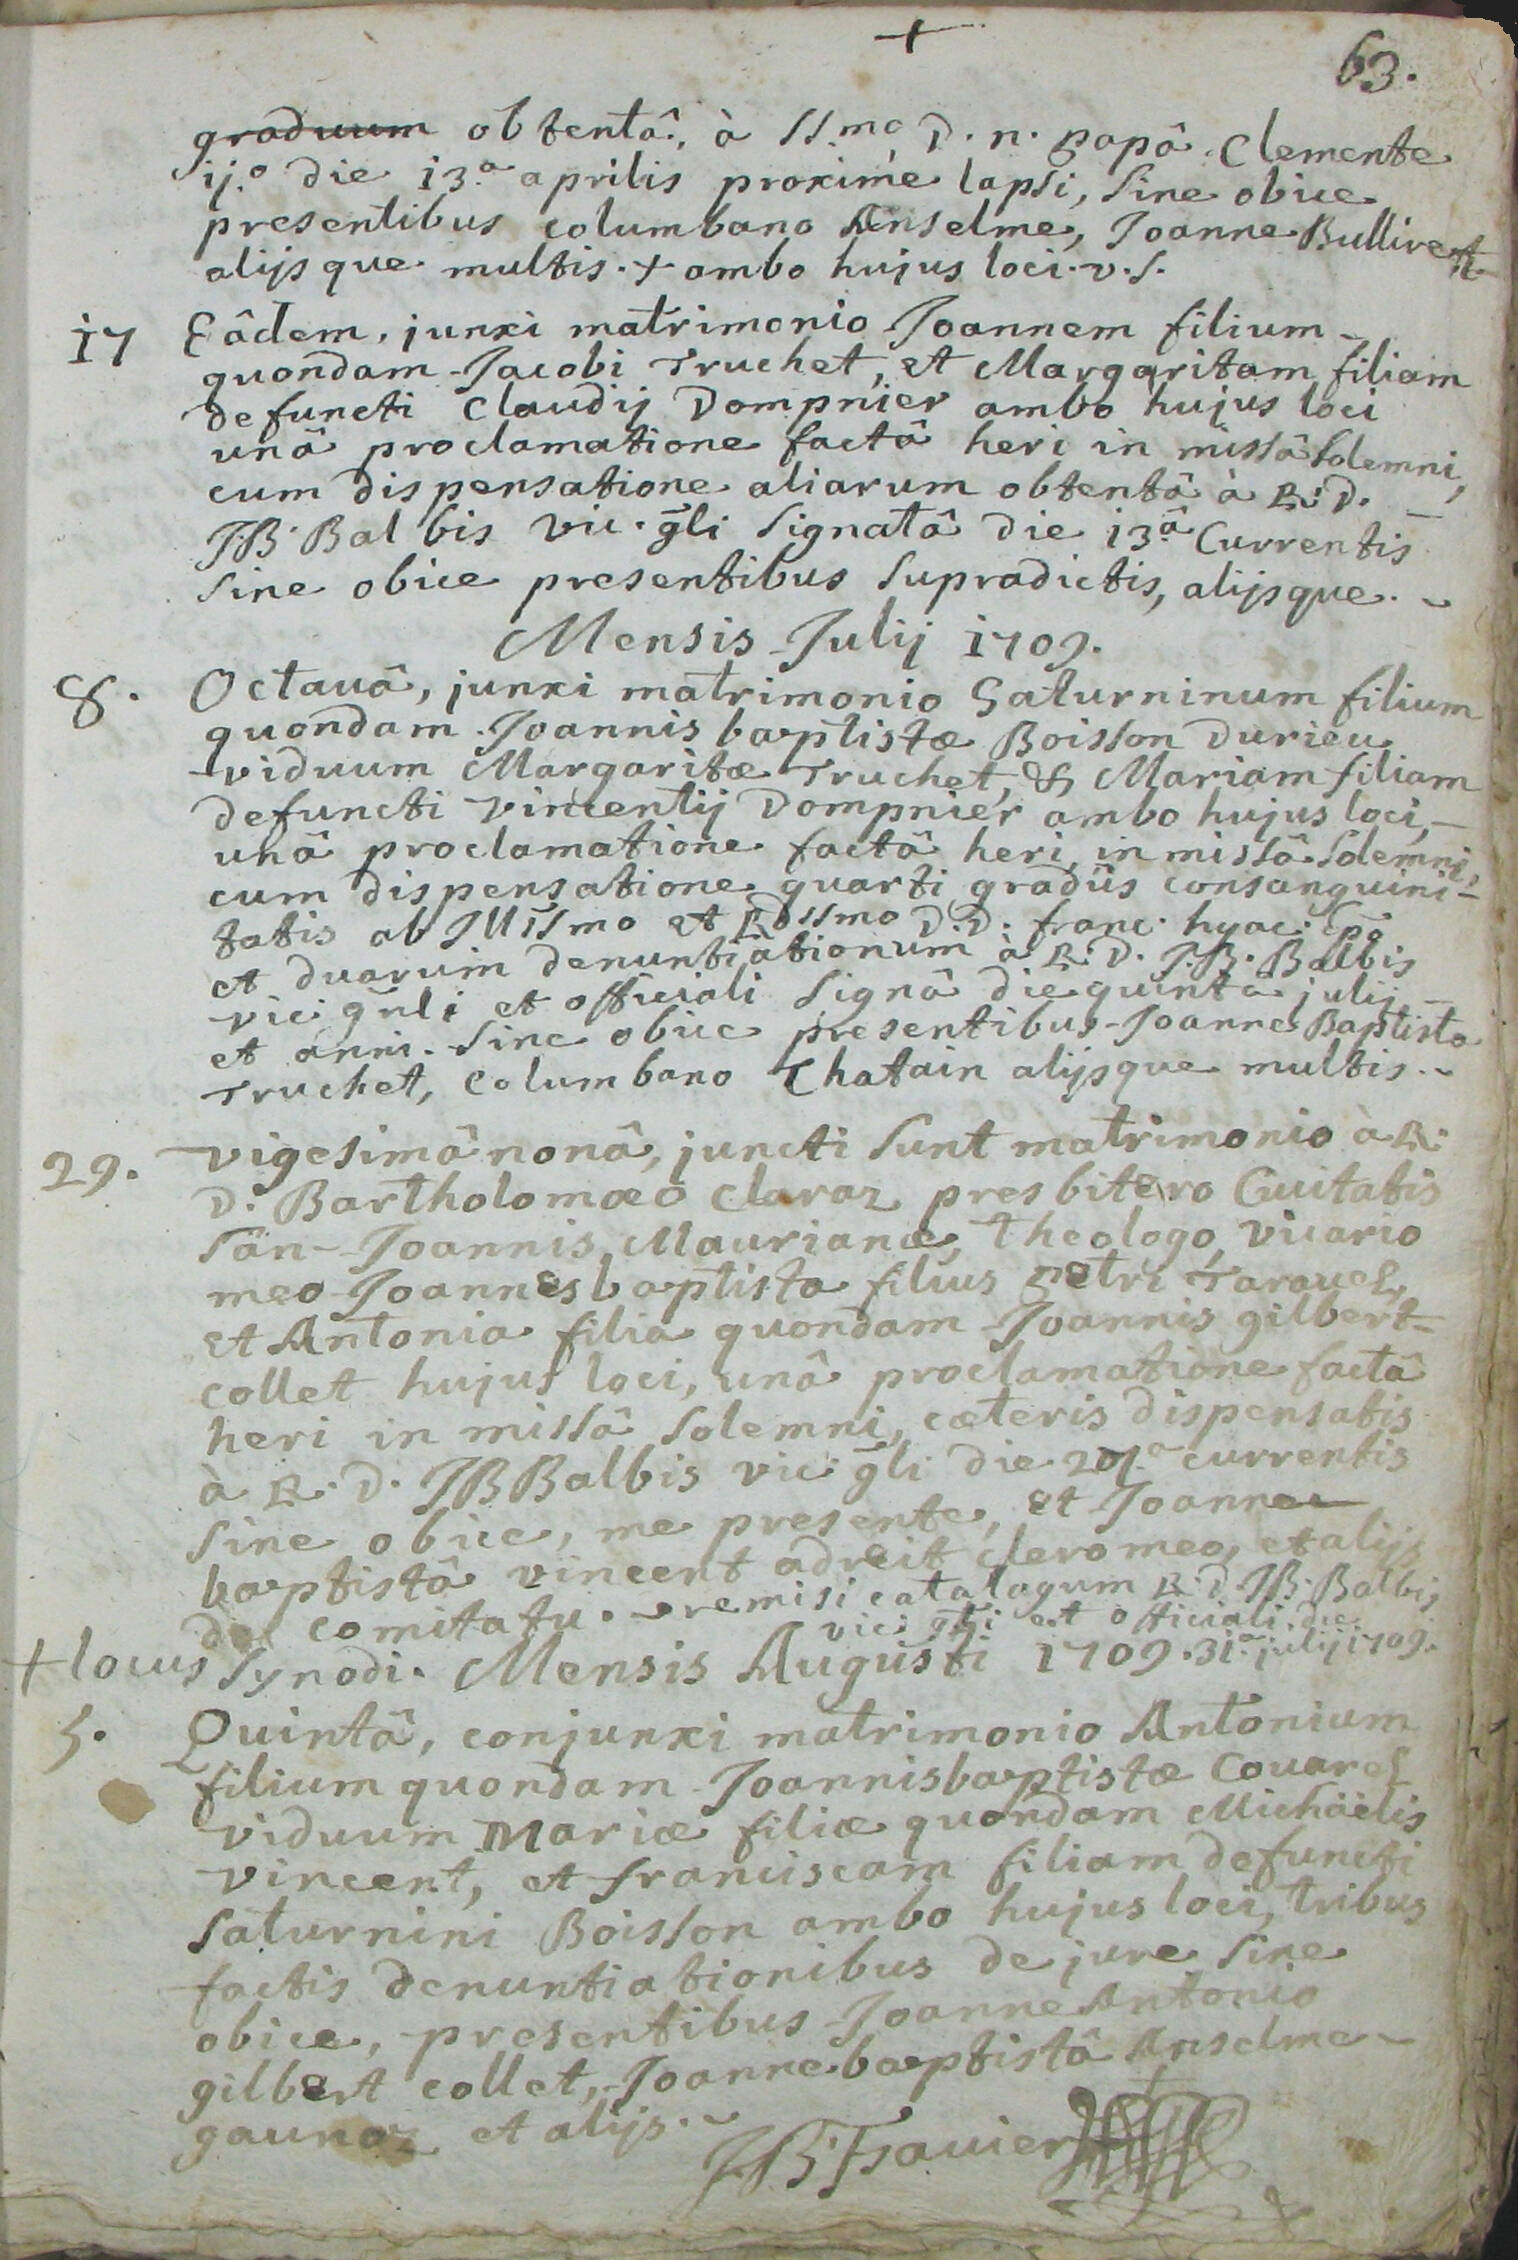 +
63.
graduum obtentâ, à SS.mo D. n. papâ Clemente
ij.o die 13.a aprilis proximè lapsi, sine obice
presentibus columbano Anselme, Joanne Bullirent
alijsque multis. + ambo hujus loci. v. s.
17 Eâdem, junxi matrimonio Joannem filium
quondam Jacobi Truchet, et Margaritam filiam
defuncti Claudij Dompnier ambo hujus loci
unâ proclamatione factâ heri in missâ solemni,
cum dispensatione aliarum obtentâ à R. D.
JB. Balbis vic. gli signatâ die 13.â Currentis
sine obice presentibus supradictis, alijsque.
Mensis Julij 1709.
8. Octauâ, junxi matrimonio Saturninum filium
quondam Joannis baptistæ Boisson durieu
viduum Margaritæ Truchet, & Mariam filiam
defuncti vincentij Dompnier ambo hujus loci,
unâ proclamatione factâ heri, in missâ solemni,
cum dispensatione quarti gradûs consanguini-
tatis ab Illismo et Rdssmo D.D. franc. hyac. Epo
et duarum denuntiationum à R. D. J.B. Balbis
vic gnli et officiali signâ die quintâ julij
et anni. sine obice presentibus Joanne Baptista
Truchet, columbano Chatain alijsque multis.
29. vigesimâ nonâ, juncti sunt matrimonio à R.
D. Bartholomæo claraz presbitero Ciuitatis
san- Joannis Maurianæ, theologo, vicario
meo Joannesbaptista filius petri Tarauel,
et Antonia filia quondam Joannis gilbert-
collet hujus loci, unâ proclamatione factâ
heri in missâ solemni, cæteris dispensatis
à R. D. JB Balbis vic gli die 27.a currentis
sine obice, me presente, et Joanne
baptistâ vincent adreit clero meo, et alijs
de comitatu. remisi catalogum R. D. JB. Balbis
vic gli et officiali, die
+ locus synodi. Mensis Augusti 1709. 31.a julij 1709.
5. Quintâ, conjunxi matrimonio Antonium
filium quondam Joannisbaptistæ Couarel
viduum Mariæ filiæ quondam Michäelis
vincent, et franciscam filiam defuncti
saturnini Boisson ambo hujus loci, tribus
factis denuntiationibus de jure sine
obice, presentibus Joanne Antonio
gilbert collet, Joannebaptistâ Anselme
gaunaz et alijs.